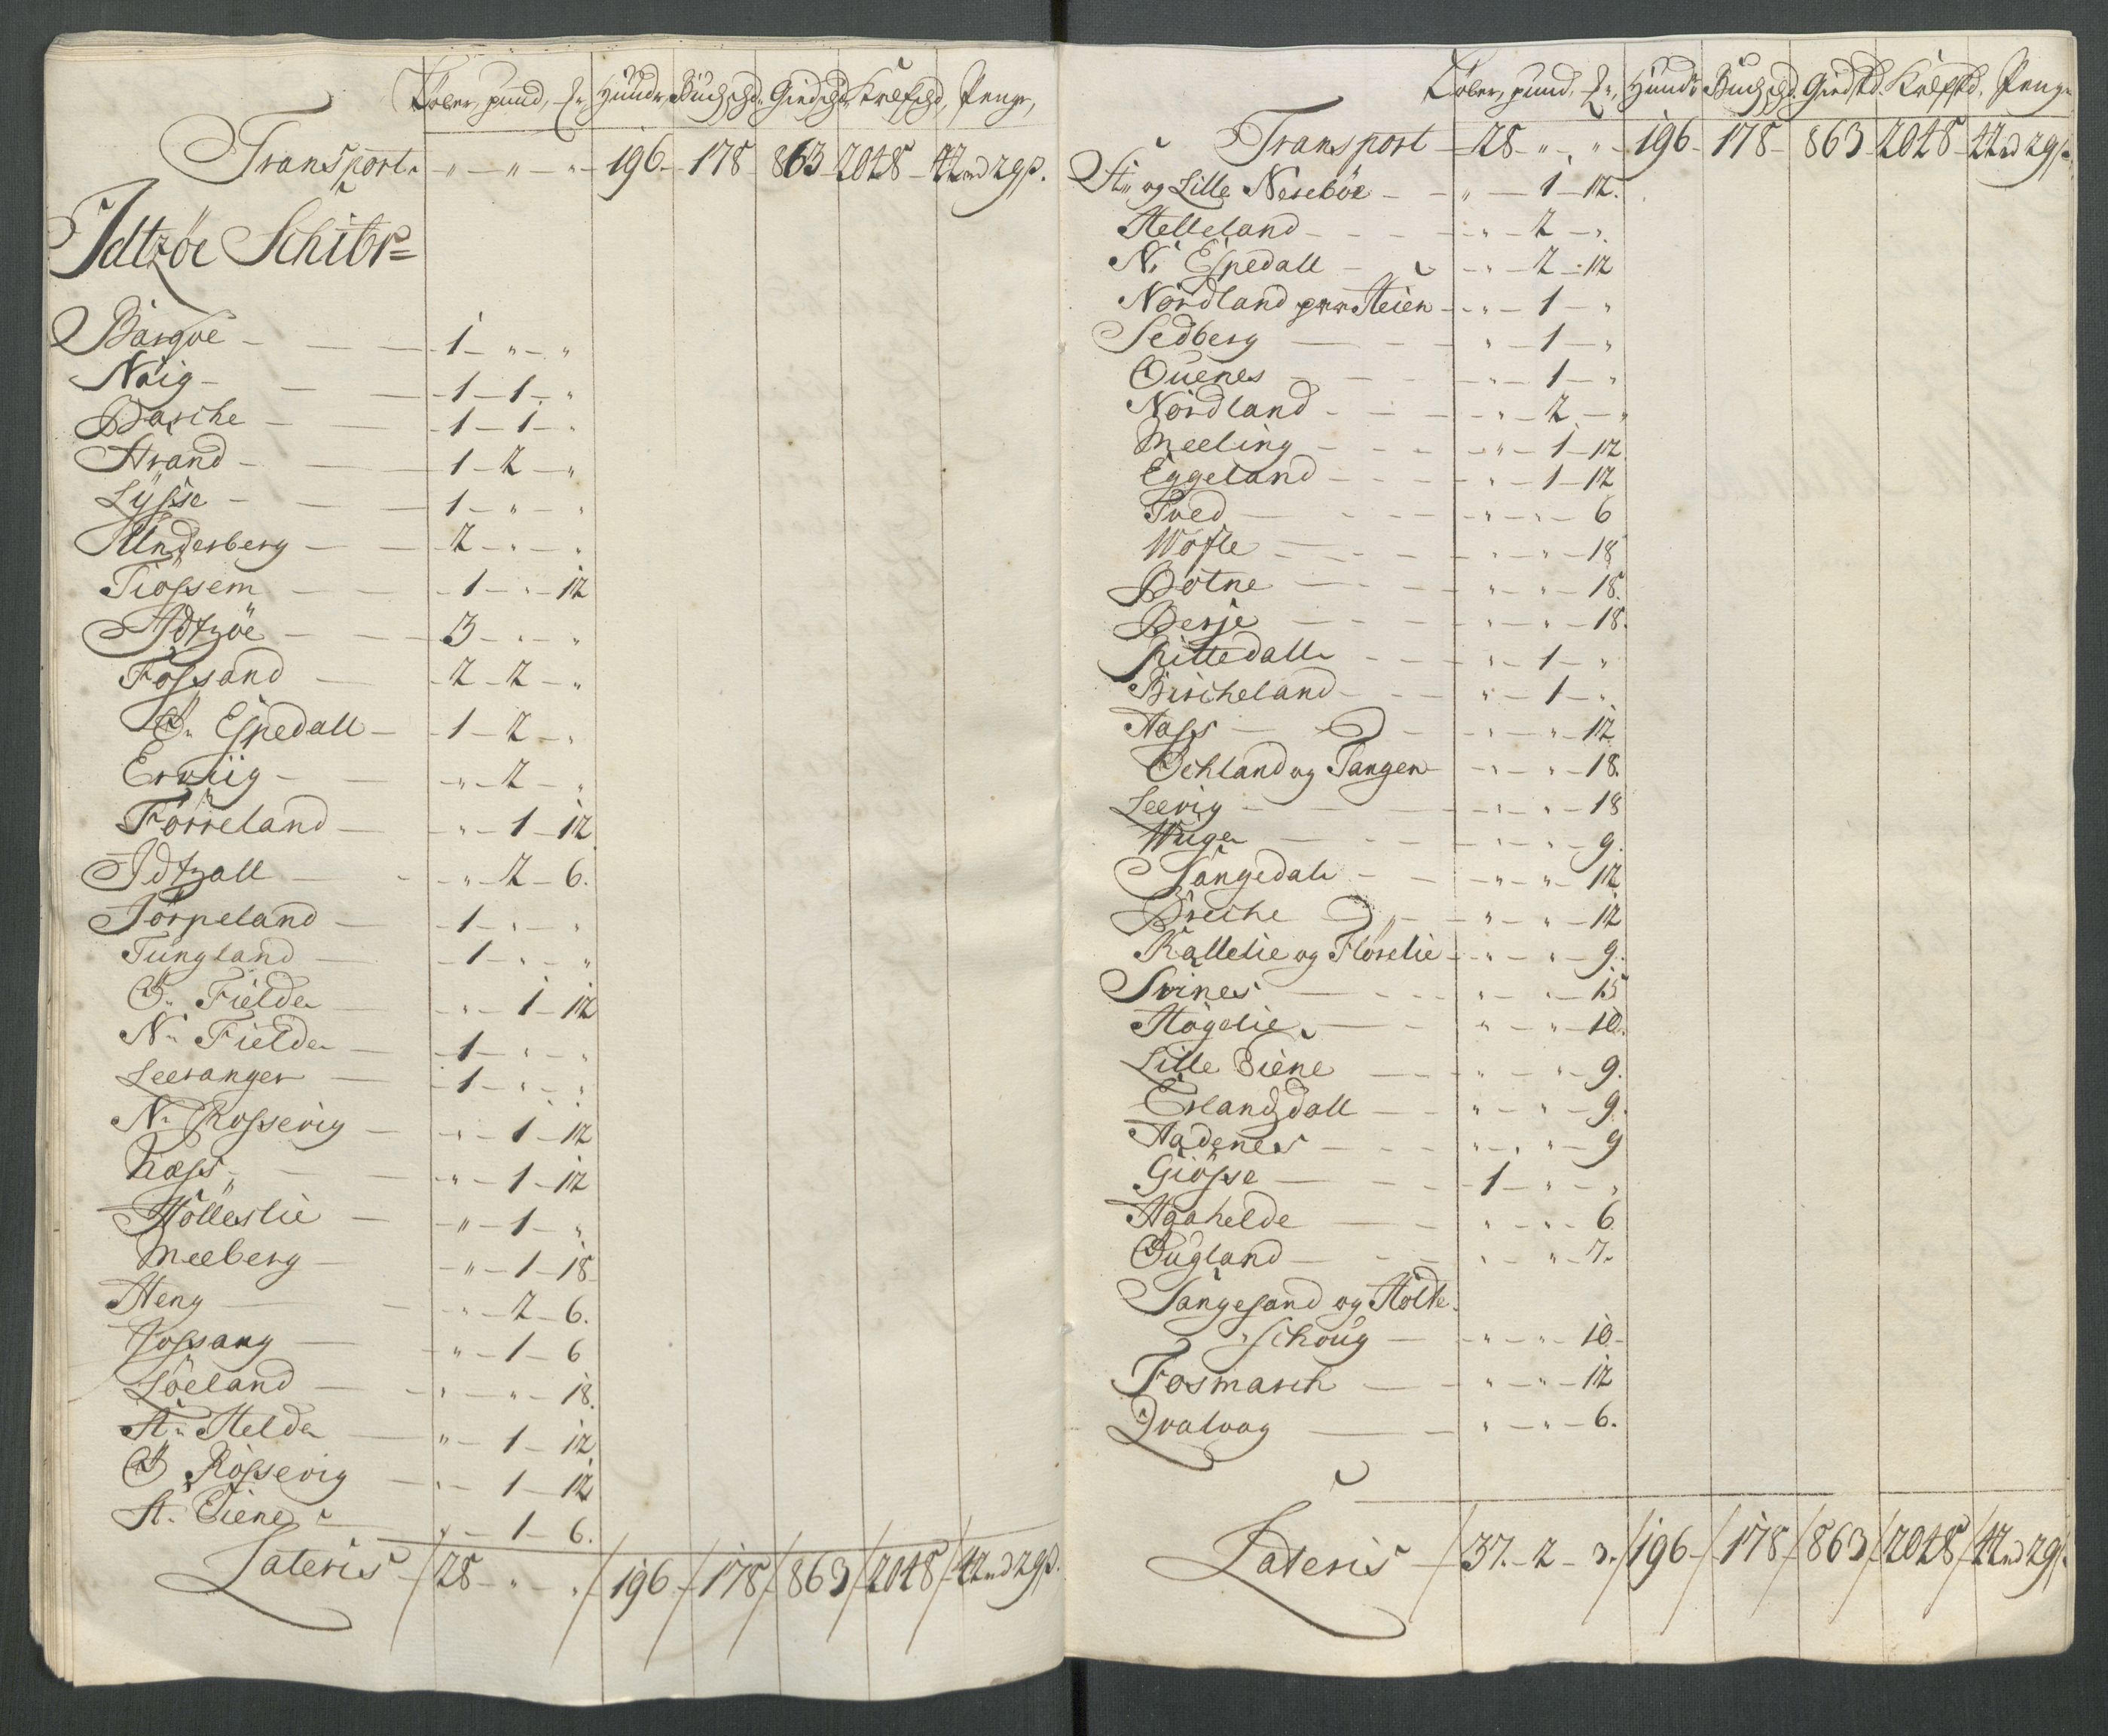 Løber, pund, ℔, Hunde, Buchschd, Giedschd, Kalfschd, Penge,
Transport. " — " — " — 196 — 178 863 — 2048 — 42 rd 29 β.
Idtzöe Schibr=
Bärgöe — 1 — " — "
Näig — 1 — 1 — "
Barche — 1 — 1 — "
Strand — 1 — 2 — "
Lysse — 1 — " — "
Underberg — 2 — " — "
Tiössem — 1 — " — 12
Idtzöe — 3 — " — "
Fossand — 2 — 2 — "
Ö. Espedall — 1 — 2 — "
Erviig — " — 2 — "
Förreland — " — 1 — 12
Idtzall — " — 2 — 6.
Jörpeland — 1 — " — "
Tungland — 1 — " — "
Ö. Fielde — " — 1 — 12
N. Fielde — 1 — " — "
Leeranger — 1 — " — "
N. Rossevig — " — 1 — 12
Næss — " — 1 — 12
Hölleslie — " — 1 — "
Meeberg — " — 1 — 18
Heng — " — 2 — 6.
Jossang — " — 1 — 6
Löeland — " — " — 18.
St. Helde — " — 1 — 12
Ö Rossevig — " — 1 — 12
St. Tiene — " — 1 — 6.
Lateris — 28 — " — " / 196 / 178 / 863 / 2048 / 42 rd 29 β.
Løber, pund, ℔, Hunde Buchschd. Giedschd. Kalfschd. Penge
Transport — 28 — " — " — 196 — 178 — 863 — 2048 — 42 rd 29 β.
St. og Lille Neseböe — " — 1 — 12.
Helleland — " — 2 — "
N. Espedall — " — 2 — 12
Nordland Heien — " — 1 — "
Sedberg — " — 1 — "
Quenes — " — 1 — "
Nordland — " — 2 — "
Meeling — " — 1 — 12
Eggeland — " — 1 — 12
Tved — " — " — 6
Wofle — " — " — 18
Botne — " — " — 18.
Berje — " — " — 18.
Rittedall — " — 1 — "
Bircheland — " — 1 — "
Aass — " — " — 12
Öchland og Tangen — " — " — 18.
Leevig — " — " — 18
Wiige — " — " — 9.
Sangedal — " — " — 12
Breche — " — " — 12
Kallelie og Florelie — " — " — 9.
Svines — " — " — 15
Högelie — " — " — 10.
Lille Tiene — " — " — 9.
Erlandzdall — " — " — 9.
Aadenes — " — " — 9
Giösse — 1 — " — "
Aaahelde — " — " — 6
Öugland — " — " — 7.
Sangesand og Holte-
schoug — " — " — 10
Fosmarch — " — " — 12
Qvalvag — " — " — 6.
Lateris — 37. — 2 — 3. / 196 / 178 / 863 / 2048 / 42 rd 29 β.